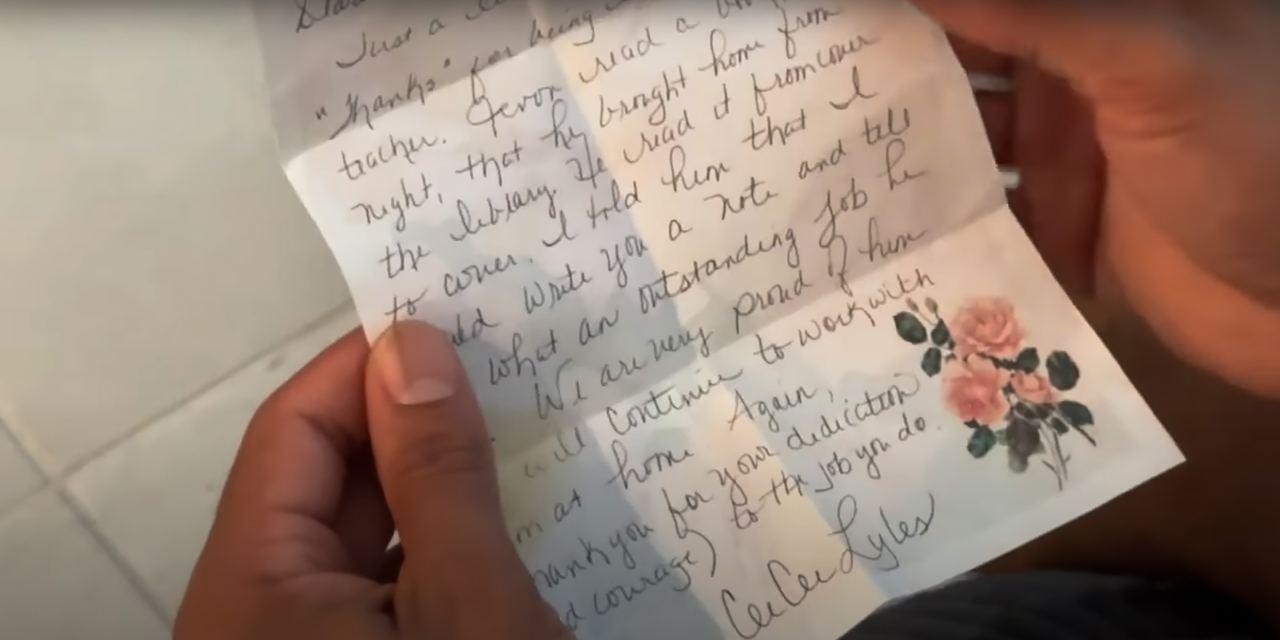 Just a
"thanks" for being
teacher. Jevon read a
night, that he brought home from
the library. He read it from cover
to cover. I told him that I
write you a note and tell
what an outstanding job he
We are very proud of him
will continue to work with
at home. Again,
thank you for your dediction
courage) to the job you do.
CeeCee Lyles